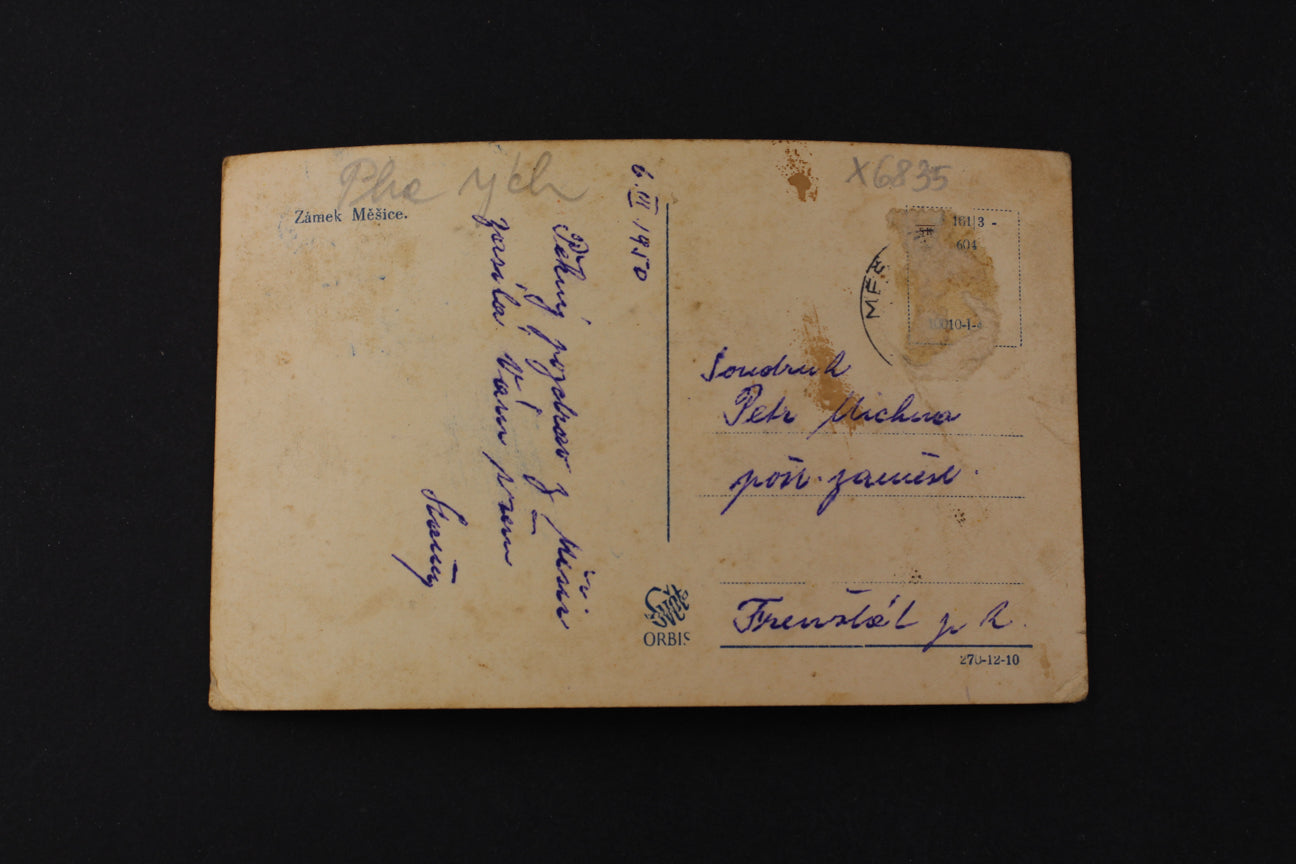 Pha vých
X6835
Zámek Měšice.
6. III 1950
Pěkný pozdrav z Měšic
zasílá Vám všem
161 3 -
604
10010-1-
MĚŠ
Soudruh
Petr Michna
pošt. zaměst.
Frenštát p R.
ORBIS
270-12-10